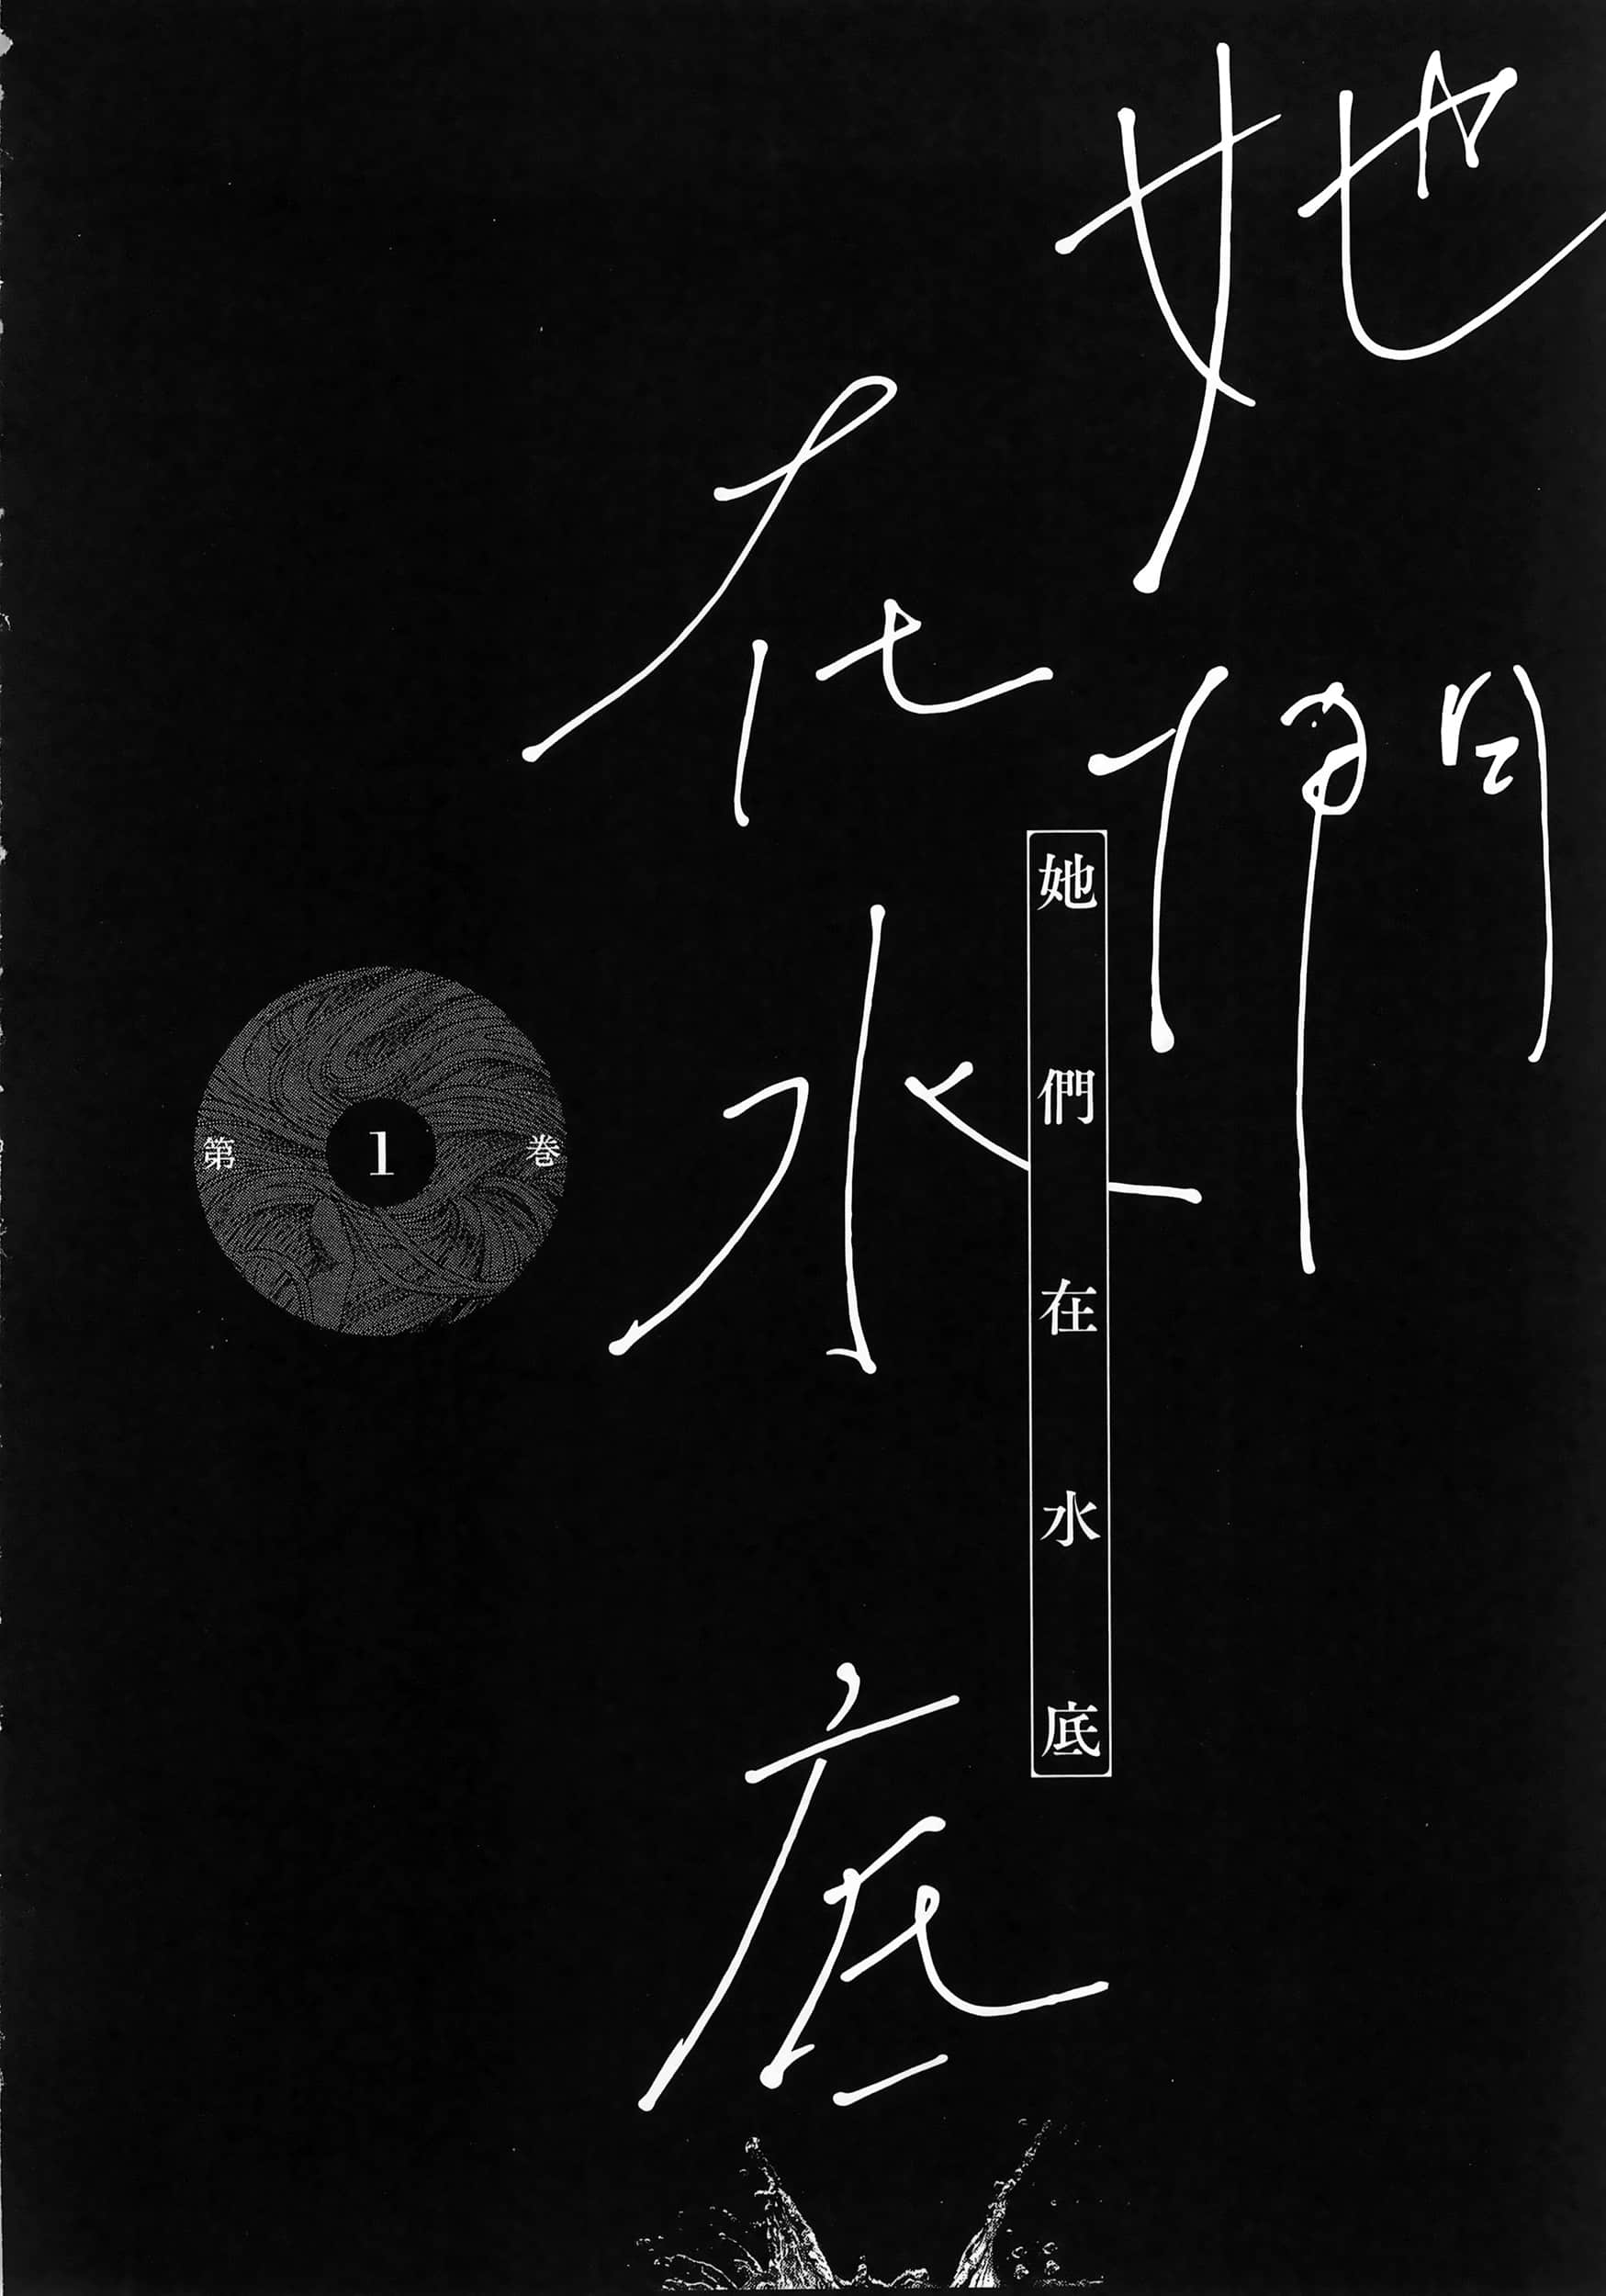 她們
在水底
她們在水底
第1巻